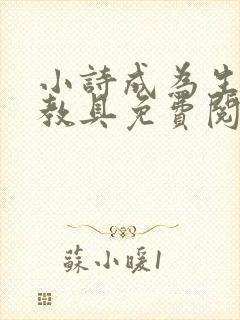 小詩成為生
教具免費閱
蘇小暖1